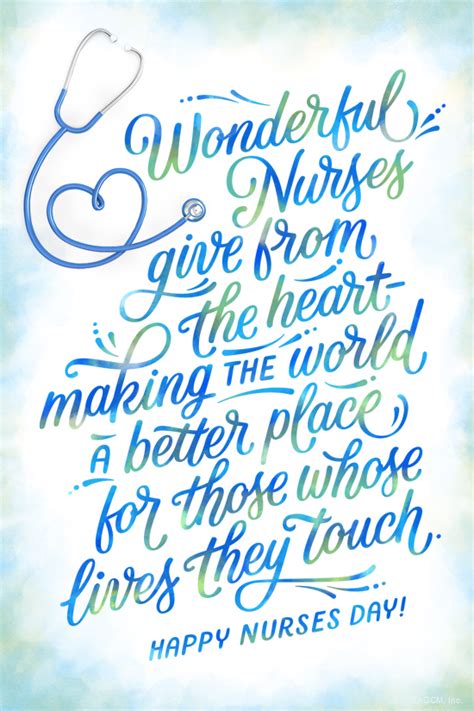 Wonderful
Nurses
give from
the heart-
making THE world
A better place,
for those whose
lives they touch.
HAPPY NURSES DAY!